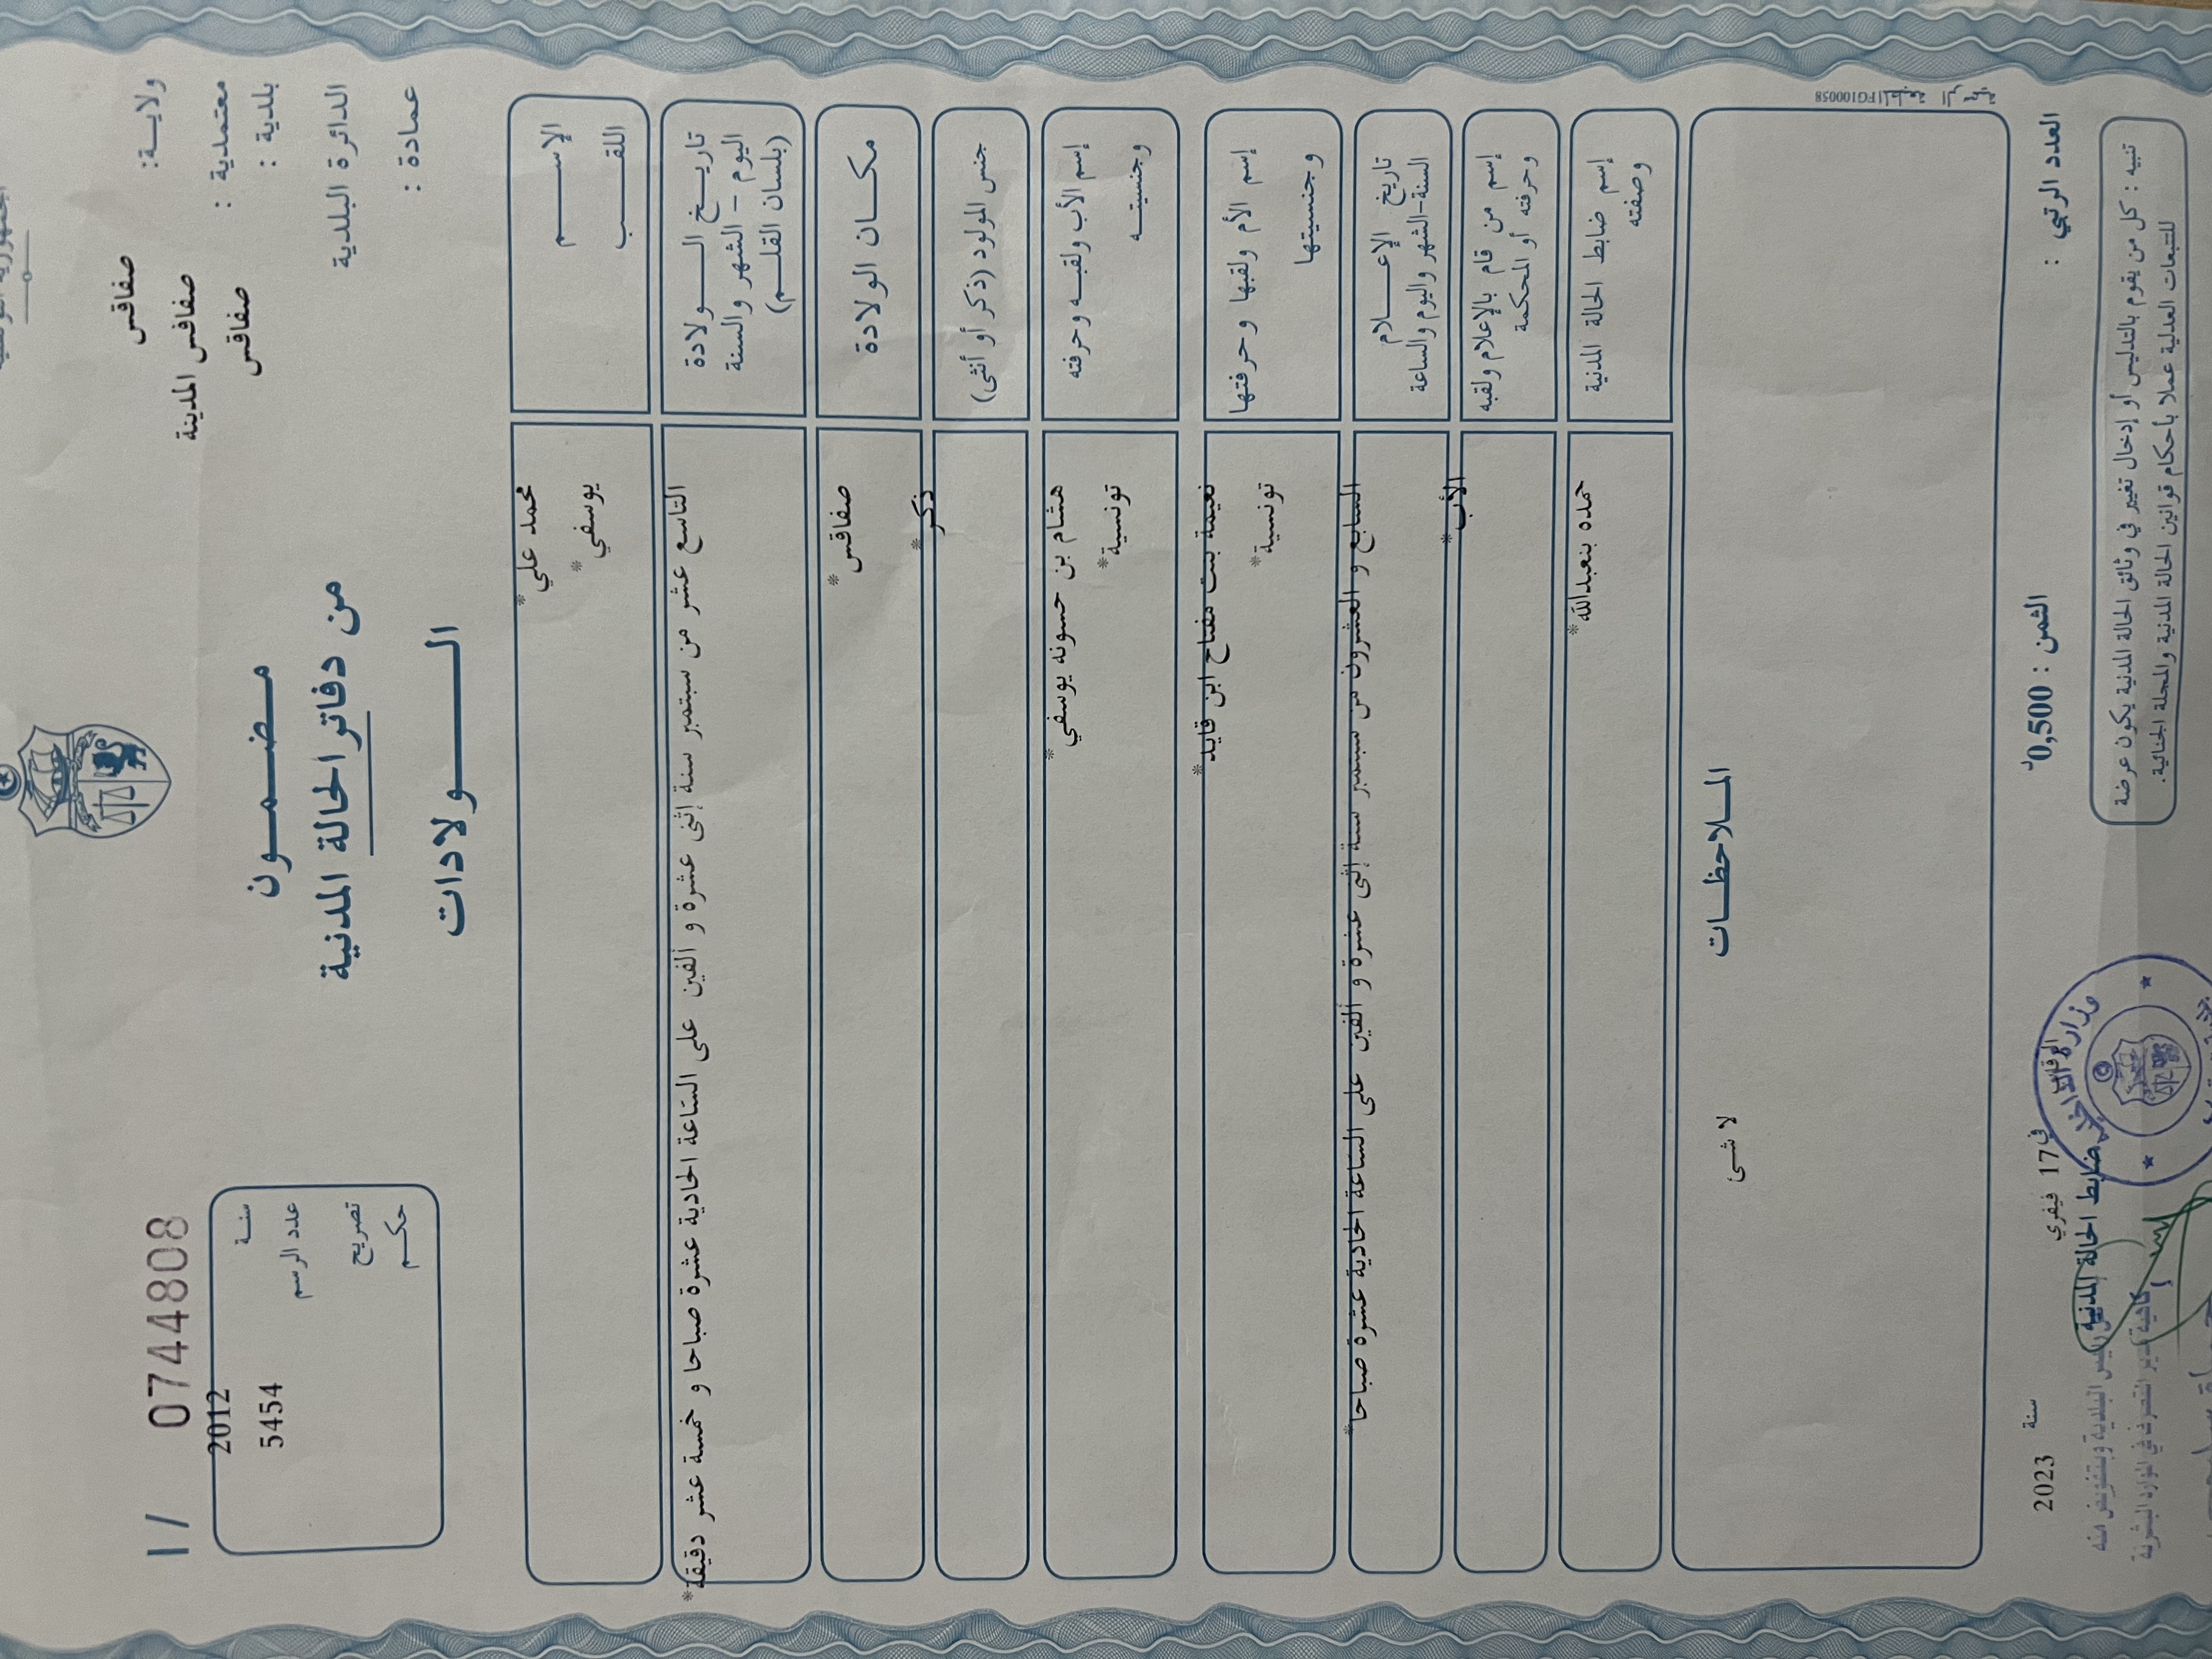 ولايــة: صفاقس
معتمدية : صفاقس المدينة
بلدية : صفاقس
الدائرة البلدية
عمادة :
مـضـمـون
من دفاتر الحالة المدنية
الـــولادات
I / 0744808
سنـة 2012
عدد الرسم 5454
تصريح
حكـم
الإســـم محمد علي*
اللقـــب يوسفي*
تاريـــخ الـــولادة
اليوم – الشهر والسنة
(بلسان القلــم)
التاسع عشر من سبتمبر سنة إثنى عشرة و ألفين على الساعة الحادية عشرة صباحا و خمسة عشر دقيقة*
مكــان الولادة صفاقس*
جنس المولود (ذكر أو أنثى) ذكر*
إسم الأب ولقبـه وحرفته هشام بن حسونه يوسفي*
وجنسيتــه تونسية*
إسم الأم ولقبها وحرفتها نعيمة بنت مفتاح ابن قايد*
وجنسيتها تونسية*
تاريخ الإعـــلام
السنة-الشهر واليوم والساعة
السابع و العشرون من سبتمبر سنة إثنى عشرة و ألفين على الساعة الحادية عشرة صباحا*
إسم من قام بالإعلام ولقبه الأب*
وحرفته أو المحكمة
إسم ضابط الحالة المدنية حمده بنعبدالله*
وصفته
المـلاحظـات
لا شى
FG100058
العدد الرتبي :
الثمن : 0,500د
في 17 فيفري سنة 2023
ضابط الحالة المدنية
وزارة الداخلية
تنبيه : كل من يقوم بالتدليس أو إدخال تغيير في وثائق الحالة المدنية يكون عرضة
للتتبعات العدلية عملا بأحكام قوانين الحالة المدنية والمجلة الجنائية.